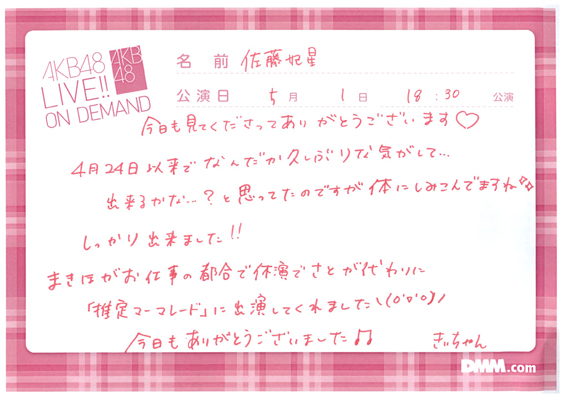 AKB48
LIVE!!
ON DEMAND
AKB
48
名前 佐藤妃星
公演日 5月 1日 18:30 公演
今日も見てくださってありがとうございます♡
4月24日以来でなんだか久しぶりな気がして…
出来るかな…?と思ってたのですが体にしみこんでますね
しっかり出来ました!!
まきほがお仕事の都合で休演でさとが代わりに
「推定マーマレード」に出演してくれました\(o'▽'o)/
今日もありがとうございました♫
きぃちゃん
DMM.com